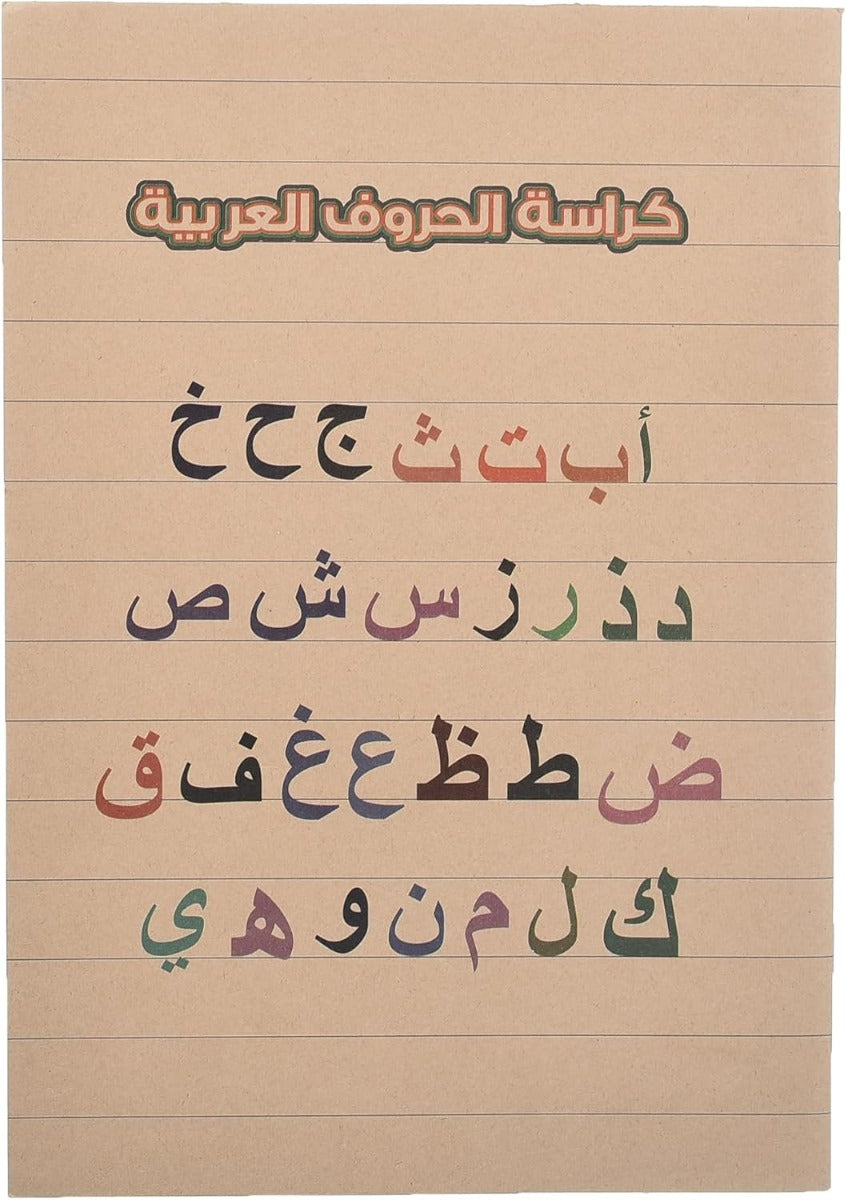 كراسة الحروف العربية
أ ب ت ث ج ح خ
د ذ ر ز س ش ص
ض ط ظ ع غ ف ق
ك ل م ن و هـ ي